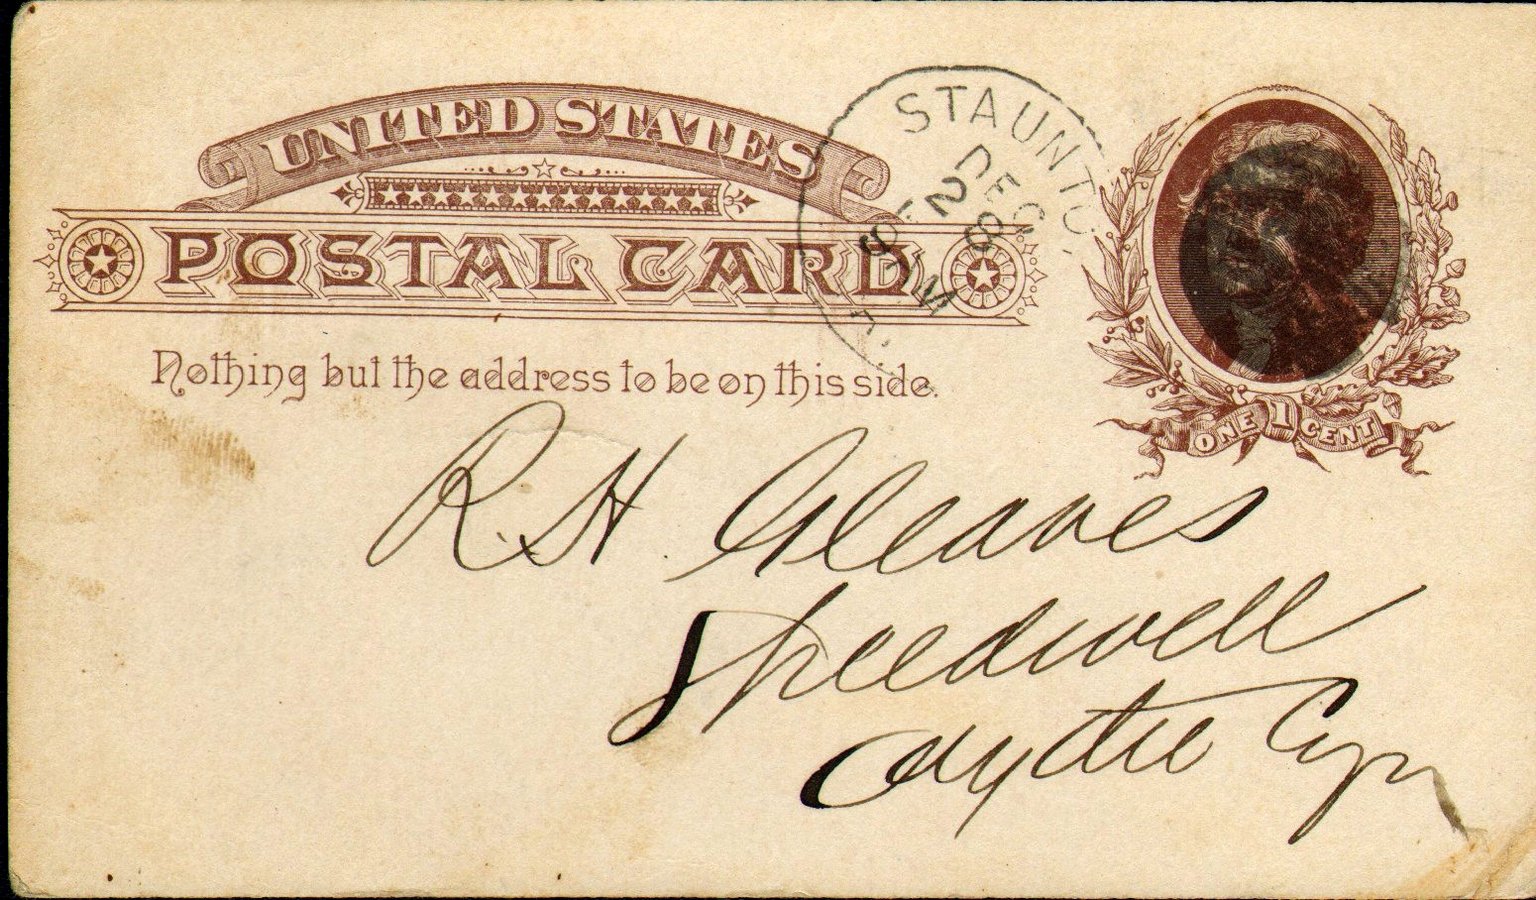 UNITED STATES
POSTAL CARD
STAUNTON,
DEC
28
8 AM
Nothing but the address to be on this side.
ONE 1 CENT
R. H. Gleaves
Speedwell
Wythe Co